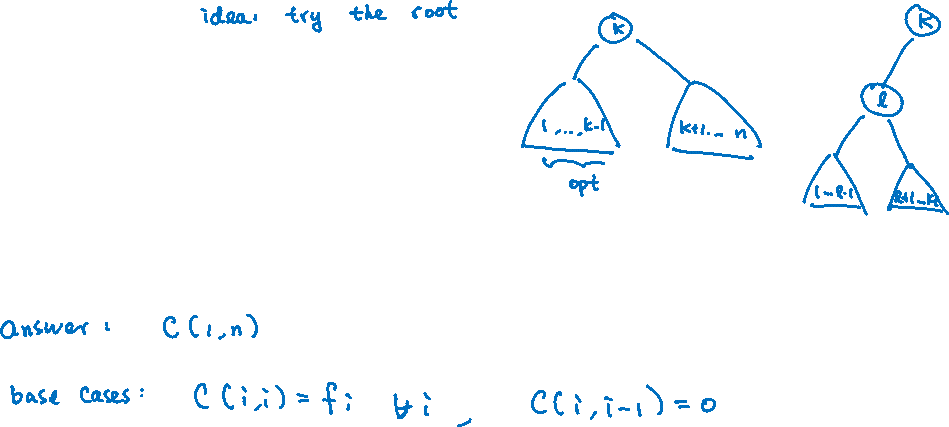 idea: try the root
k
k
l
1, ..., k-1
k+1 ... n
opt
1 ... l-1
answer: C(1,n)
base cases: C(i,i) = fi ∀i, C(i,i-1) = 0